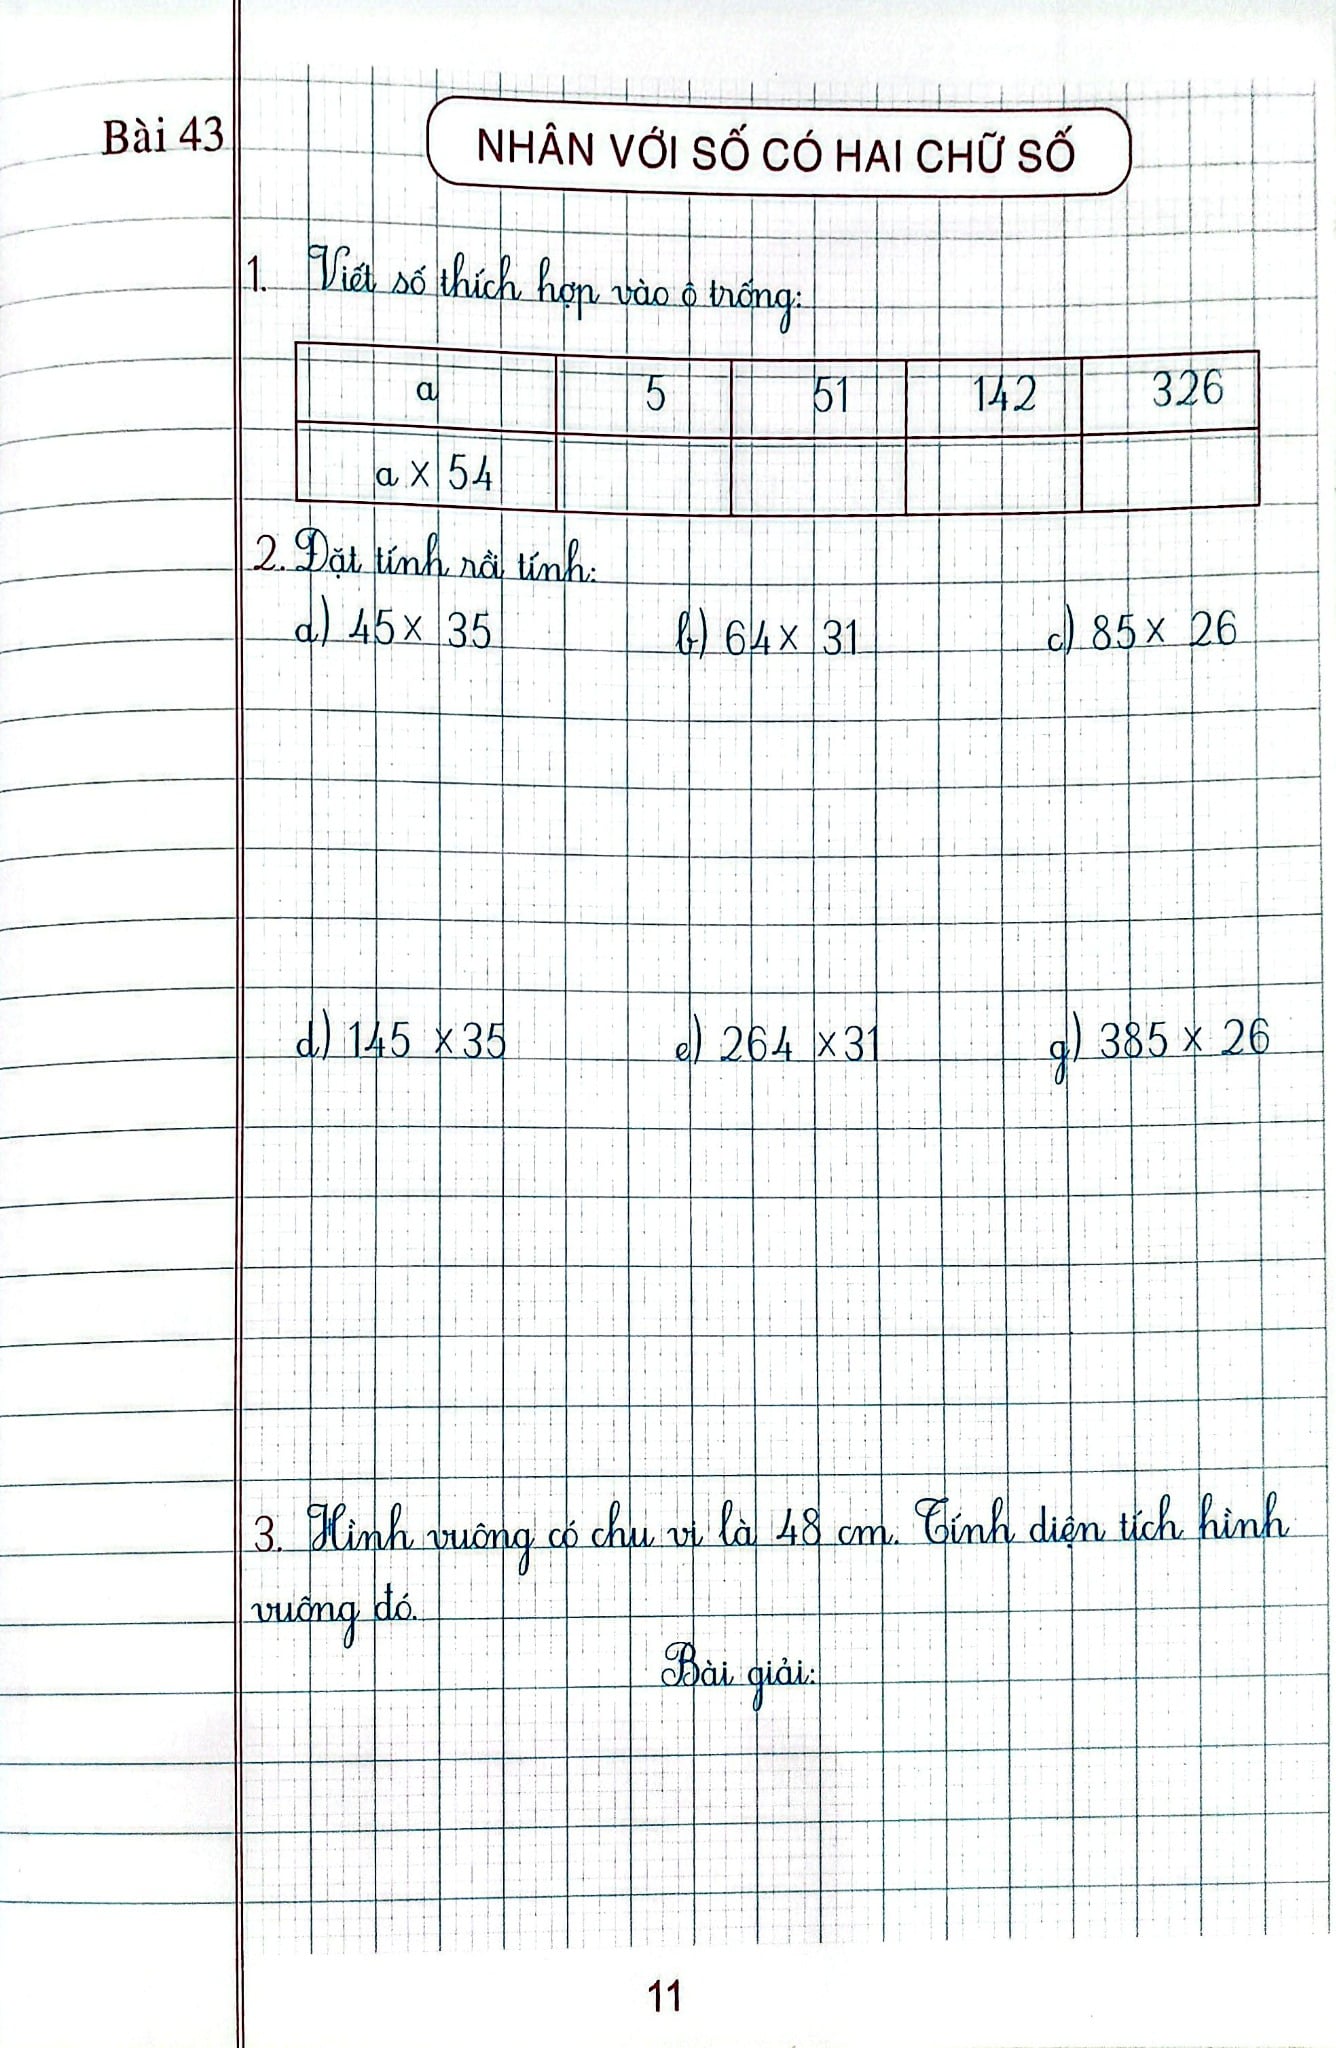 Bài 43
NHÂN VỚI SỐ CÓ HAI CHỮ SỐ
1. Viết số thích hợp vào ô trống:
a 5 51 142 326
a x 54
2. Đặt tính rồi tính:
a) 45 x 35 b) 64 x 31 c) 85 x 26
d) 145 x 35 e) 264 x 31 g) 385 x 26
3. Hình vuông có chu vi là 48 cm. Tính diện tích hình
vuông đó.
Bài giải:
11